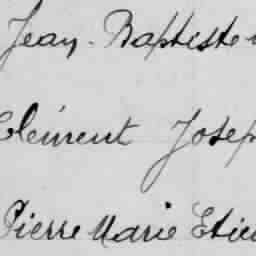 Jean-Baptiste
Clément Josep
Pierre Marie Etien